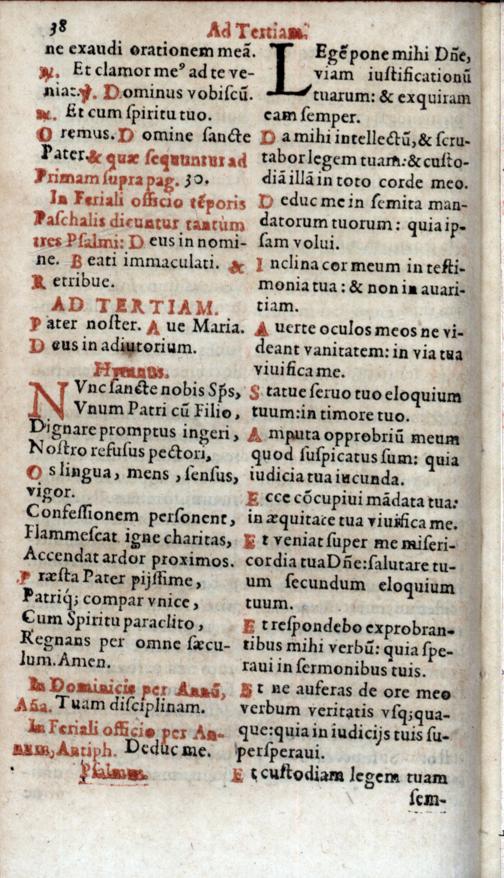 38
Ad Tertiam.
ne exaudi orationem meã.
℟. Et clamor meꝰ ad te ve-
niat. ℣. Dominus vobiscũ.
℟. Et cum spiritu tuo.
Oremus. Domine sancte
Pater. & quæ sequuntur ad
Primam supra pag. 30.
In Feriali officio tẽporis
Paschalis dicuntur tantùm
tres Psalmi: Deus in nomi-
ne. Beati immaculati. &
Retribue.
AD TERTIAM.
Pater noster. Aue Maria.
Deus in adiutorium.
Hymnus.
NVnc sancte nobis Sp̃s,
Vnum Patri cũ Filio,
Dignare promptus ingeri,
Nostro refusus pectori,
Os lingua, mens, sensus,
vigor.
Confessionem personent,
Flammescat igne charitas,
Accendat ardor proximos.
Præsta Pater pijssime,
Patriq́; compar vnice,
Cum Spiritu paraclito,
Regnans per omne sæcu-
lum. Amen.
In Dominicis per Annũ,
Aña. Tuam disciplinam.
In Feriali officio per An-
num, Antiph. Deduc me.
Psalmus.
LEgẽ pone mihi Dñe,
viam iustificationũ
tuarum: & exquiram
eam semper.
Da mihi intellectũ, & scru-
tabor legem tuam: & custo-
diã illã in toto corde meo.
Deduc me in semita man-
datorum tuorum: quia ip-
sam volui.
Inclina cor meum in testi-
monia tua: & non in auari-
tiam.
Auerte oculos meos ne vi-
deant vanitatem: in via tua
viuifica me.
Statue seruo tuo eloquium
tuum: in timore tuo.
Amputa opprobriũ meum
quod suspicatus sum: quia
iudicia tua iucunda.
Ecce cõcupiui mãdata tua:
in æquitate tua viuifica me.
Et veniat super me miseri-
cordia tua Dñe: salutare tu-
um secundum eloquium
tuum.
Et respondebo exprobran-
tibus mihi verbũ: quia spe-
raui in sermonibus tuis.
Et ne auferas de ore meo
verbum veritatis vsq; qua-
que: quia in iudicijs tuis su-
persperaui.
Et custodiam legem tuam
sem-